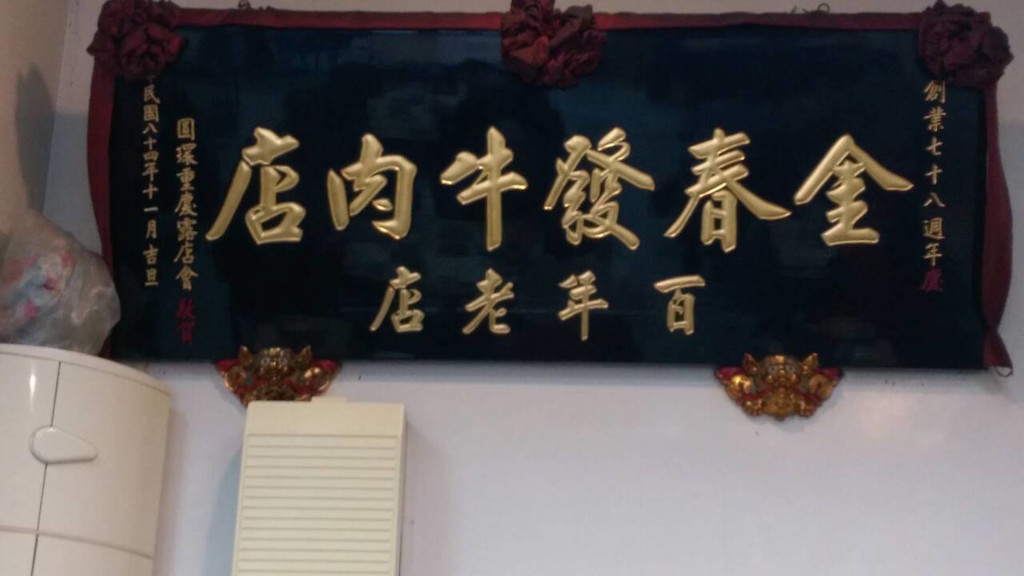 創業七十八週年慶
金春發牛肉店
百年老店
圓環重慶露店會 敬賀
民國八十四年十一月吉旦